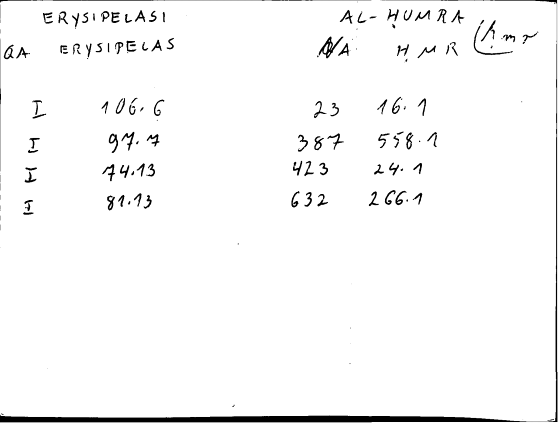 ERYSIPELASI AL-ḤUMRA
QA ERYSIPELAS A ḤMR (ḥmr
I 106.6 23 16.1
I 97.7 387 558.1
I 74.13 423 24.1
I 81.13 632 266.1